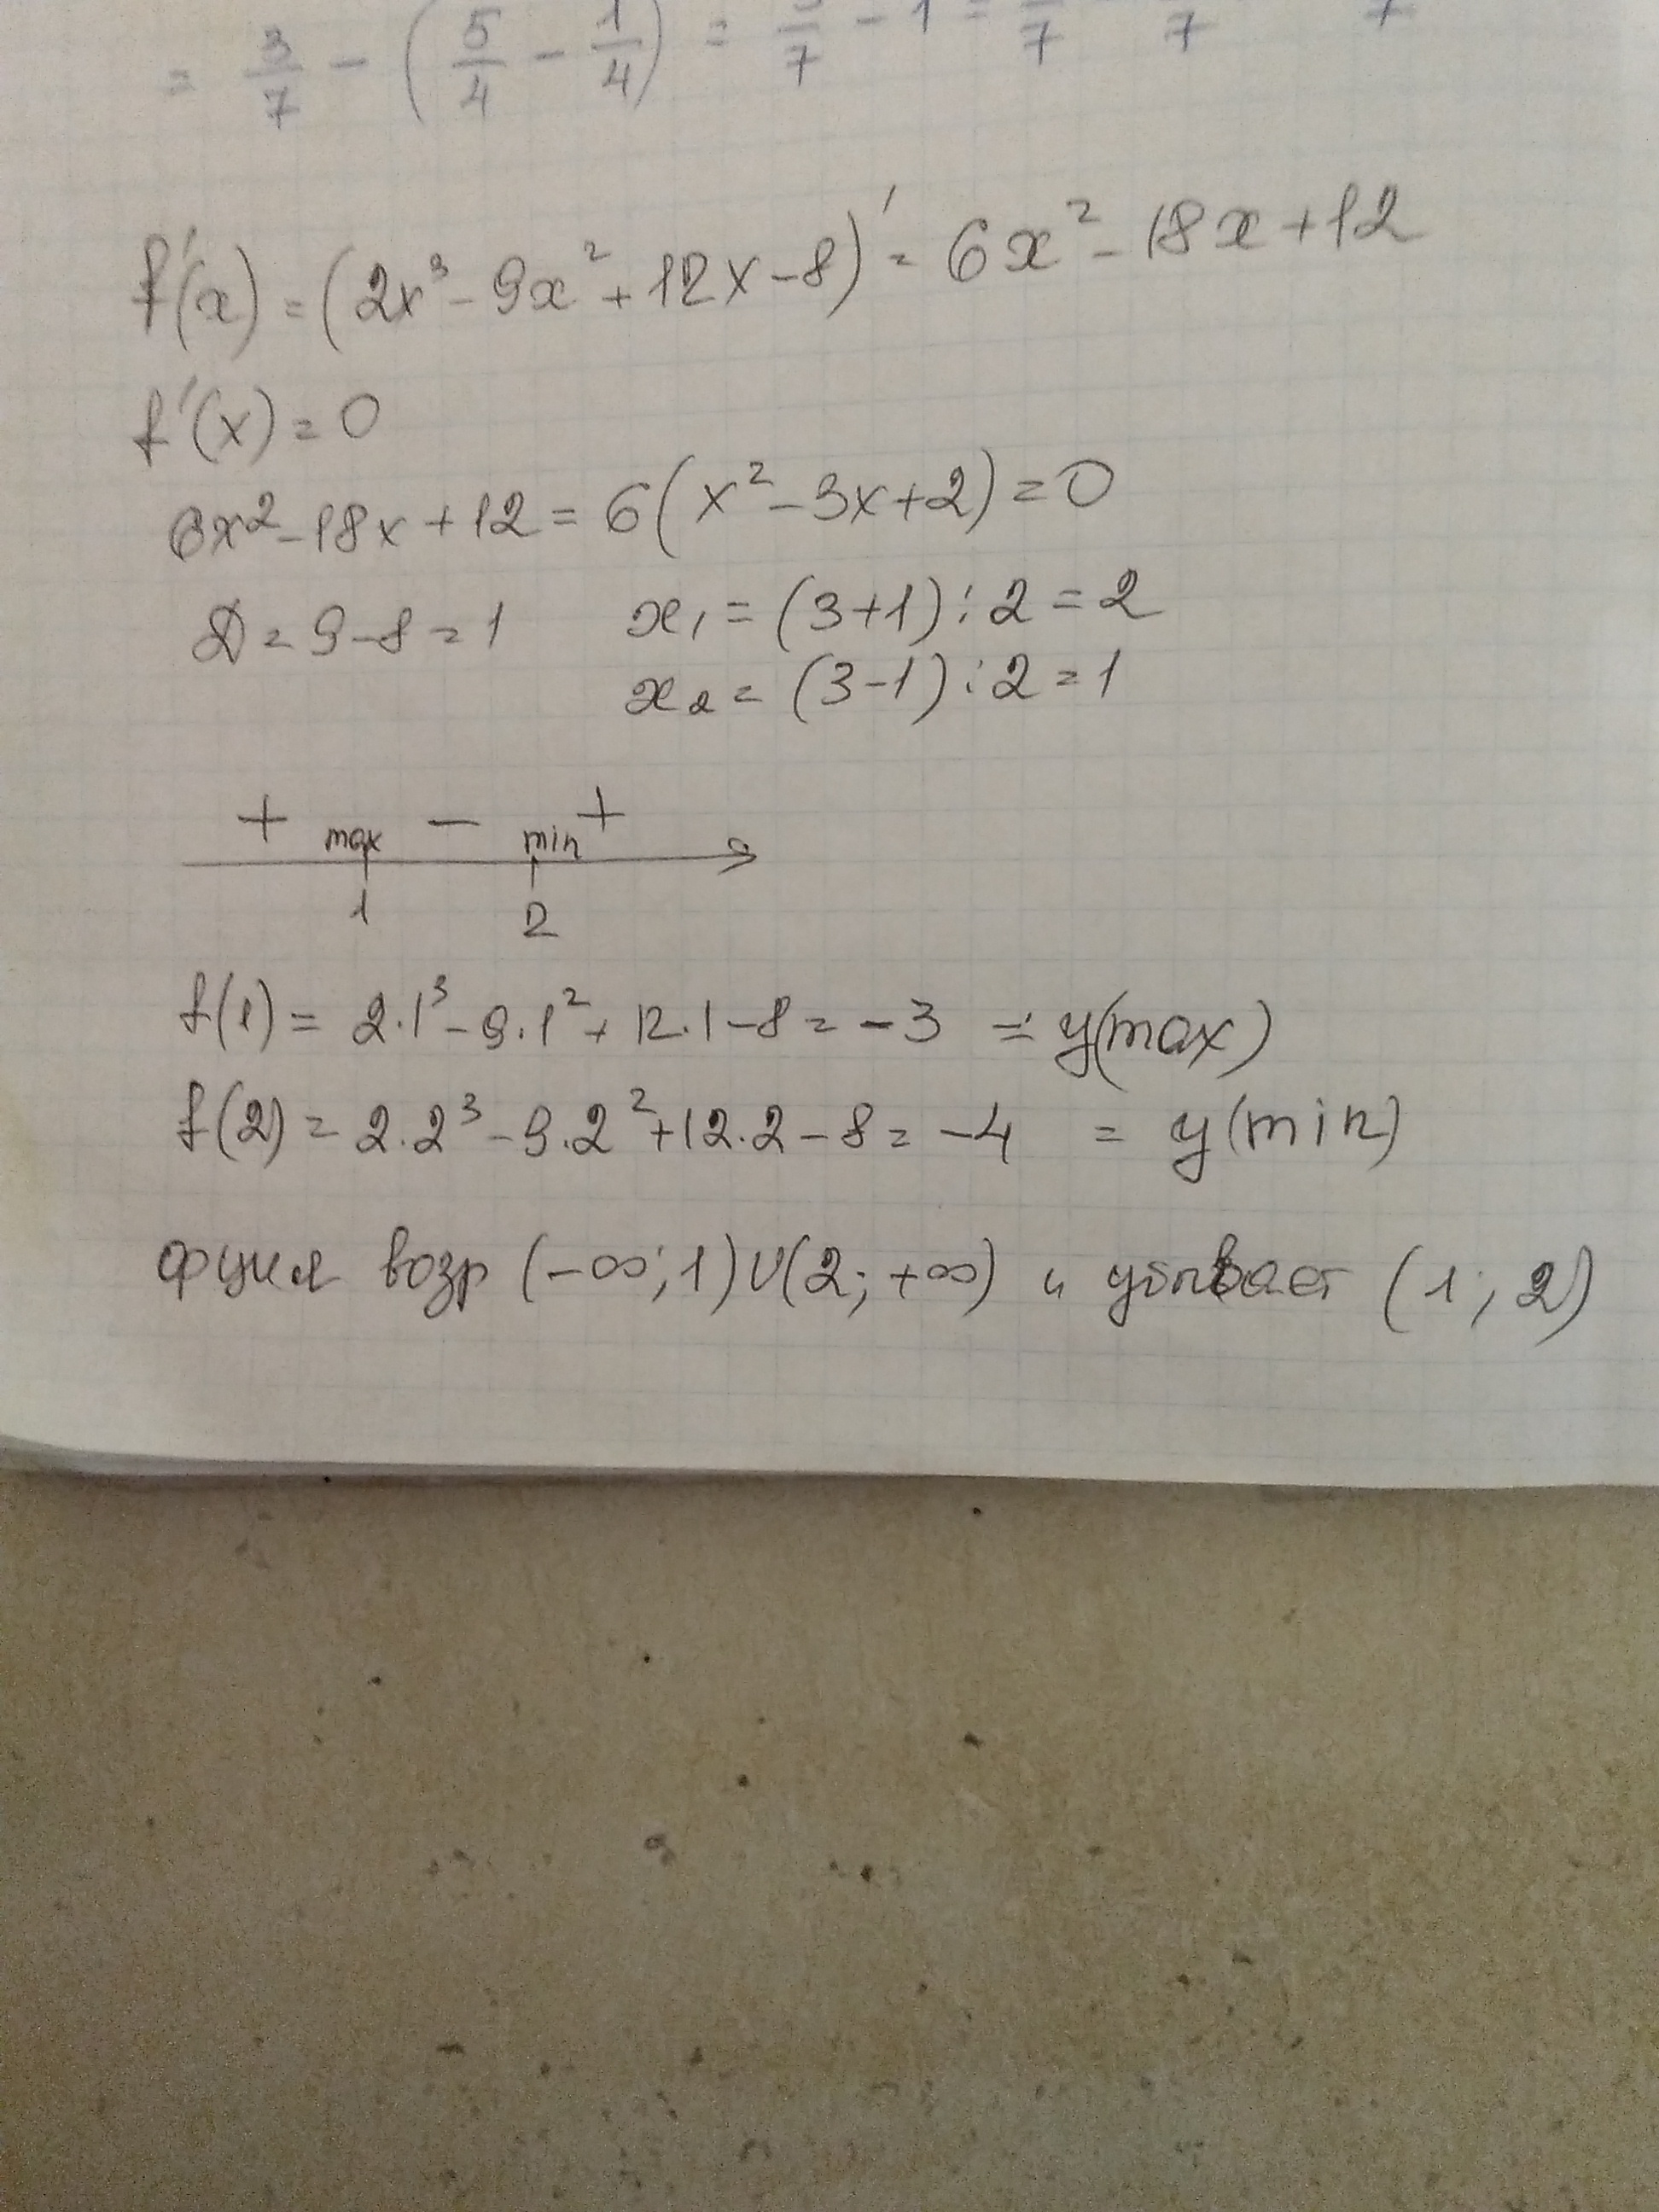 = 3/7 - (5/4 - 1/4) = /7 - 1 = /7 /7 /7
f'(x) = (2x³ - 9x² + 12x - 8)' = 6x² - 18x + 12
f'(x) = 0
6x² - 18x + 12 = 6(x² - 3x + 2) = 0
D = 9 - 8 = 1 x₁ = (3+1) : 2 = 2
x₂ = (3-1) : 2 = 1
+ max - min +
1 2
f(1) = 2·1³ - 9·1² + 12·1 - 8 = -3 = y(max)
f(2) = 2·2³ - 9·2² + 12·2 - 8 = -4 = y(min)
фция возр (-∞; 1) U (2; +∞) и убывает (1; 2)